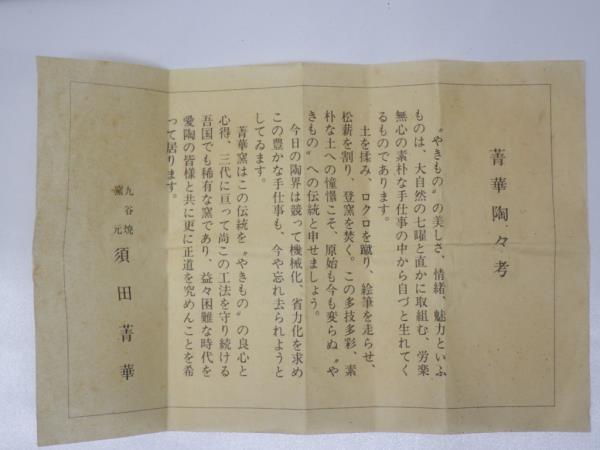 菁華陶々考
〝やきもの〟の美しさ、情緒、魅力といふ
ものは、大自然の七曜と直かに取組む、労楽
無心の素朴な手仕事の中から自づと生れてく
るものであります。
土を揉み、ロクロを蹴り、絵筆を走らせ、
松薪を割り、登窯を焚く。この多技多彩、素
朴な土への憧憬こそ、原始も今も変らぬ〝や
きもの〟への伝統と申せましょう。
今日の陶界は競って機械化、省力化を求め
この豊かな手仕事も、今や忘れ去られようと
してゐます。
菁華窯はこの伝統を〝やきもの〟の良心と
心得、三代に亘って尚この工法を守り続ける
吾国でも稀有な窯であり、益々困難な時代を
愛陶の皆様と共に更に正道を究めんことを希
って居ります。
九谷焼
窯元
須田菁華